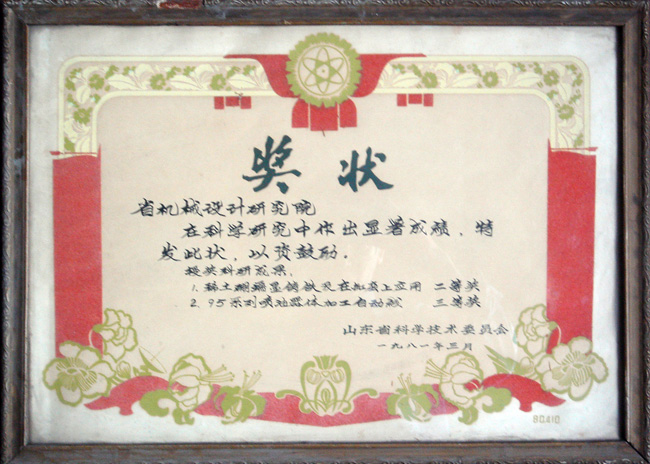 奖状
省机械设计研究院
在科学研究中作出显著成绩，特
发此状，以资鼓励。
授奖科研成果：
1. 稀土硼 铸铁 在机床上应用 二等奖
2. 95系列 油器体加工自动线 三等奖
山东省科学技术委员会
一九八一年三月
80.4.10